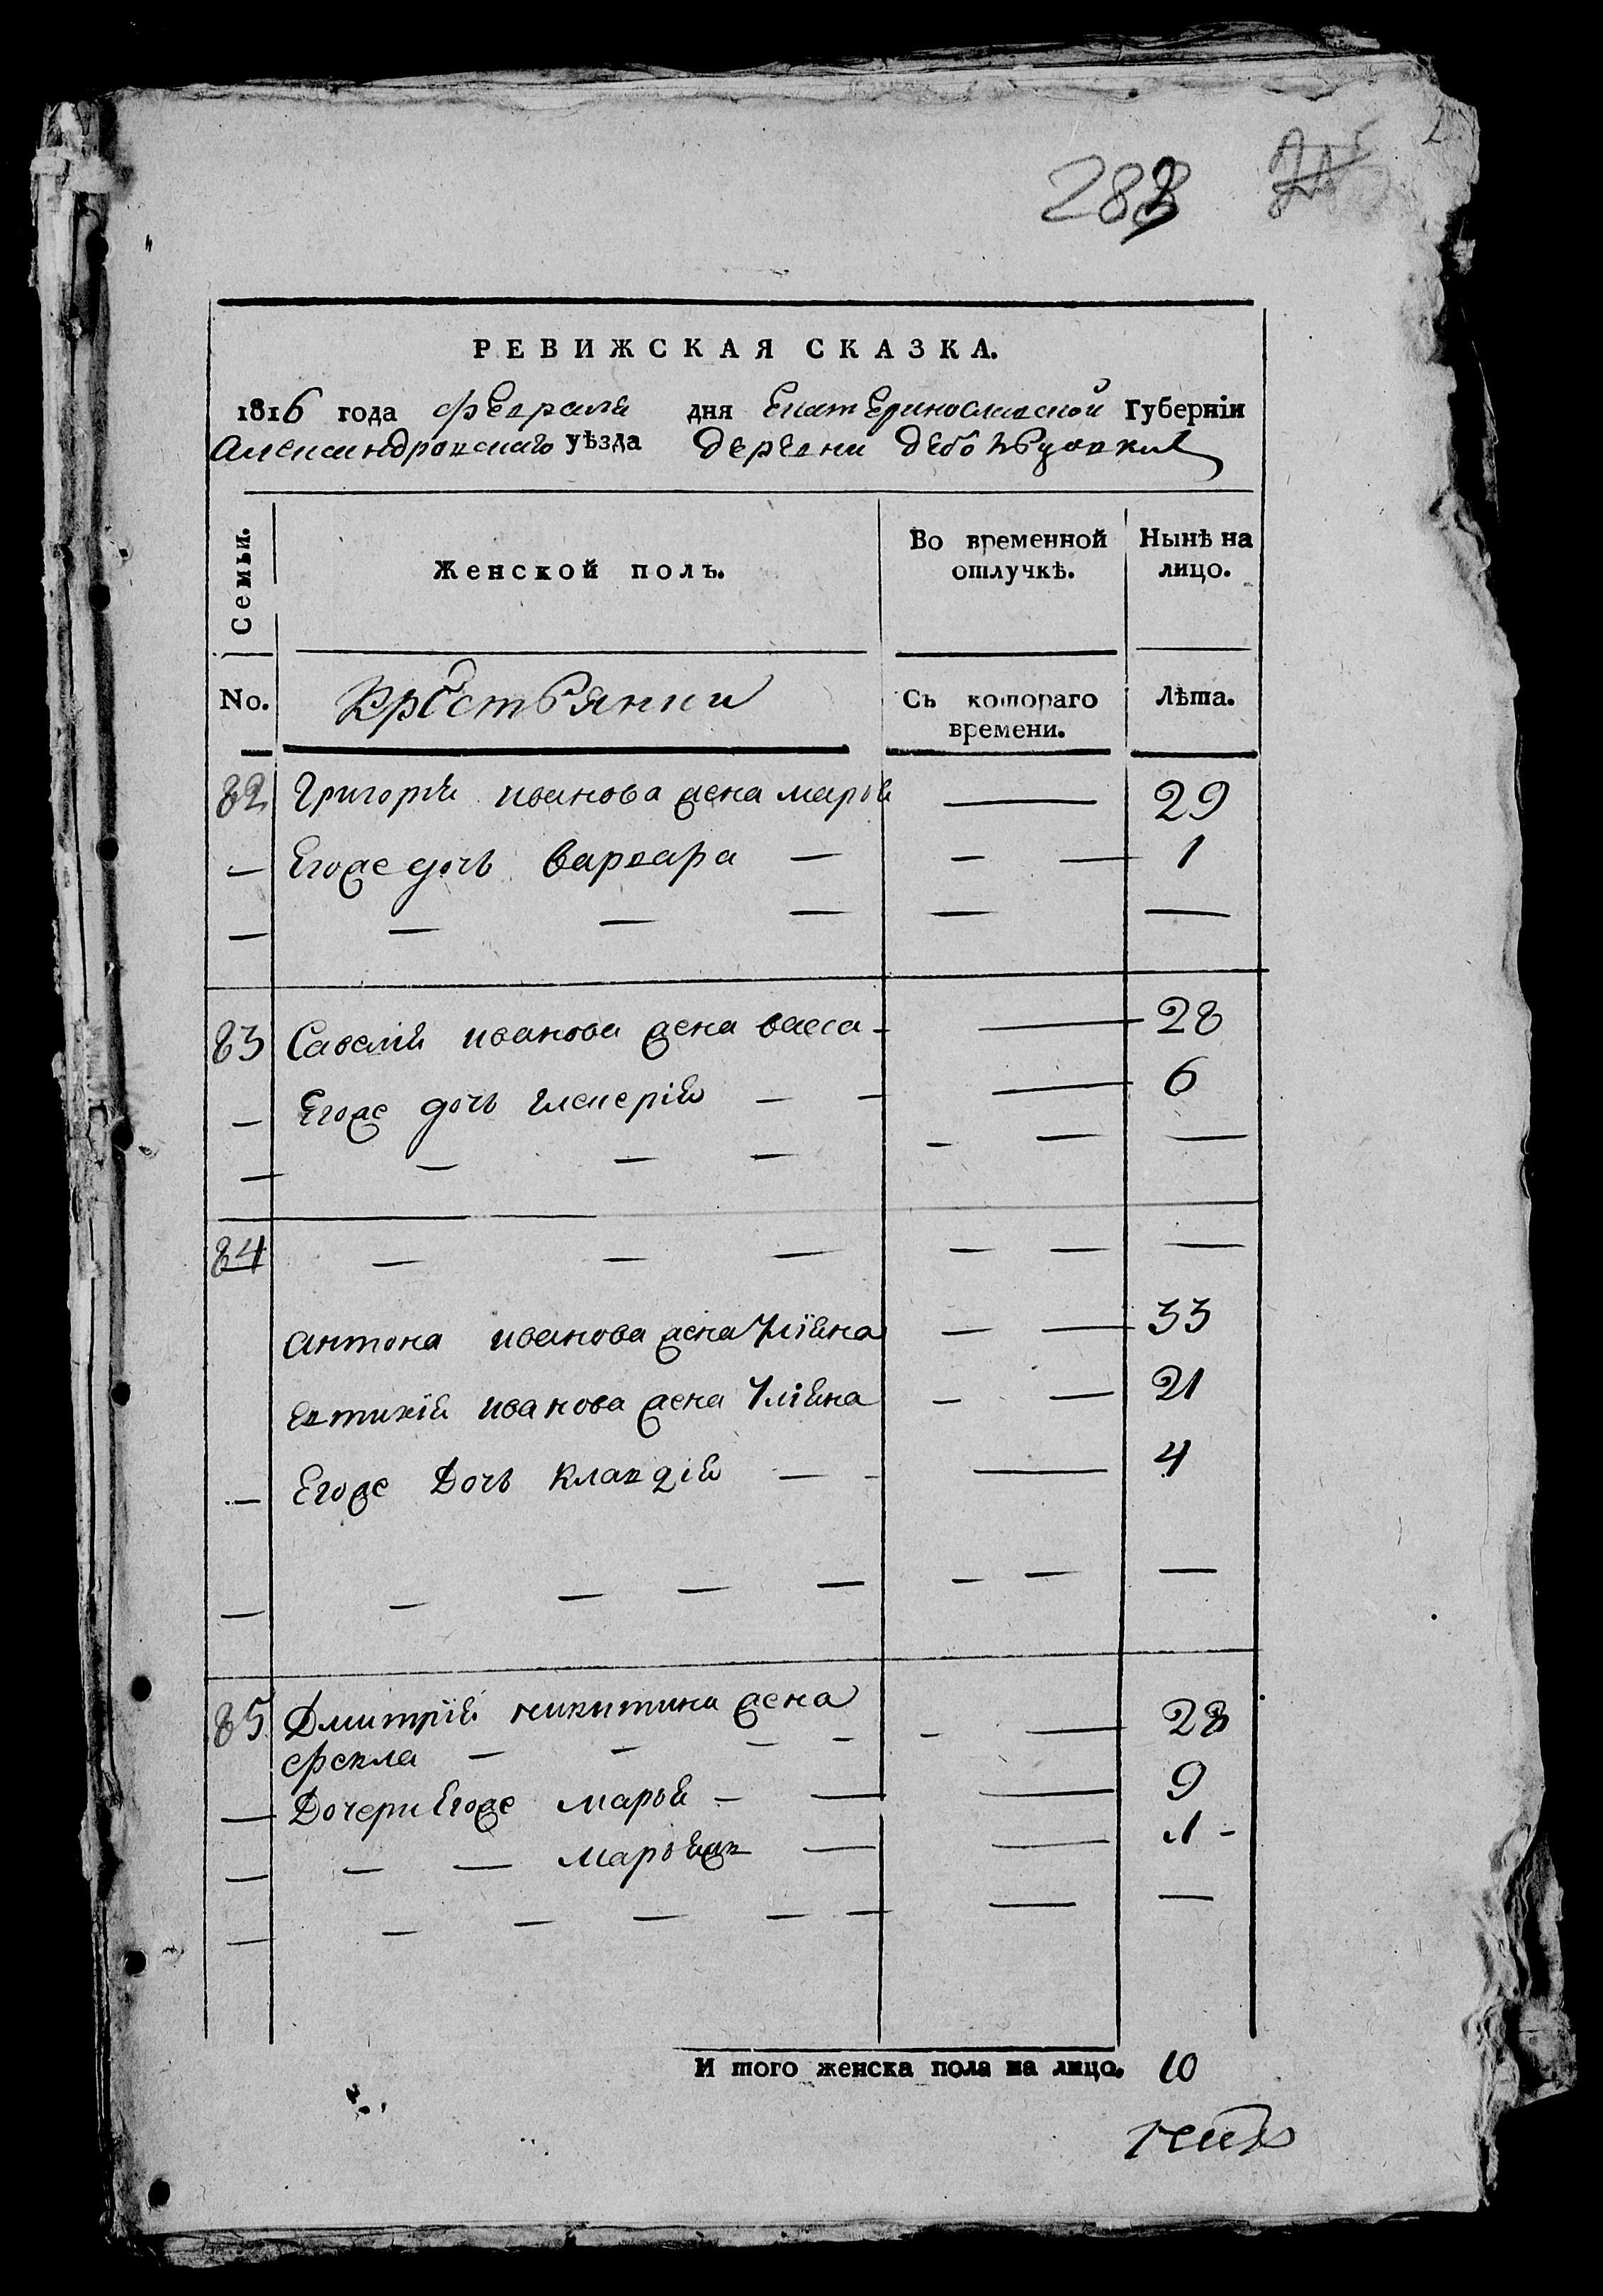 283
РЕВИЖСКАЯ СКАЗКА.
1816 года февраля дня Екатеринославской Губерніи
Александровскаго уѣзда деревни
Семьи.
Женской полъ.
Во временной отлучкѣ.
Нынѣ на лицо.
No.
Крестьянки
Съ котораго времени.
Лѣта.
82 Григорія иванова жена марья — 29
— Егоже дочь варвара — — — 1
83 Савелія иванова жена васса — 28
— Егоже дочь гликерія — — 6
84 — — — — — —
антона иванова жена Улияна — — 33
евтихія иванова жена Улияна — — 21
— Егоже Дочь клавдія — — 4
85 Дмитрія никитина жена
фекла — — — — — — 28
— Дочери Егоже марья — — — 9
— — — марья ж — — 1 -
И того женска пола на лицо. 10